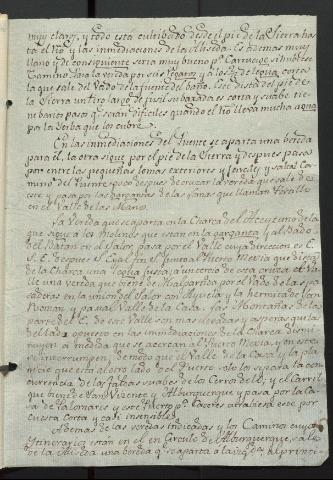 muy claro, y todo esta cultivado desde el pie de la Sierra has
ta el Rio y las inmediaciones de la Aliseda. Es ademas muy
llano y de consiguiente seria muy bueno pª. Carruage si hubiese
Camino. Sale la vereda por
que sale del Vado de la fuente del baño. Este dista del pie de
la Sierra un tiro largo de fusil su bajada es corta y suabe tie
ne barro paso qe. seran dificiles quando el Rio lleva mucha agua
por la Yerba que los cubre.
En las inmediaciones del Puente se aparta una vereda
para el. la otra sigue por el pie de la Sierra y despues pasa
por entre las pequeñas lomas exteriores y
mino del Puente poco despues de cruzar la vereda que sale de
este y pasa por las gargantas de las Lomas que llaman
en el Valle de la Mano.
La Vereda que se aparta en la Charca del
que sigue a los Molinos que estan en la garganta y al lado
del Batan en el Salor, pasa por el Valle cuya direccion es E.
S. E. despues S. el qual en el Puerto Mexia que dista
de la Charca una legua justa a un tercio de esta cruza el Va
lle una vereda que viene de Malpartida por el Vado de las pa
saderas en la union del Salor con Ayuela y la hermita de Sn.
Roman y pasa al Valle de la Casa. las Montañas de la
parte del E. de este Valle son mas elevadas y asperas que las
del lado opuesto en las inmediaciones de la Charca dismi
nuyen a medida que se acercan al Puerto Mexia y en este
se interrumpen, de modo que el Valle de la Casa y la pla
nicie que esta al otro lado del Puerto solo los separa la con
currencia de las faldas suabes de los Cerros del O. y el Carril
que viene de San Vicente y Alburquerque y pasa por la Ca
sa de Palomares y este Puerto pª. Caceres atrabiesa este por
cuesta corta y casi insensible.
Ademas de las veredas indicadas y los Caminos cuyos
Itinerarios estan en el Circulo de Alburquerque, sale
de la Aliseda una vereda qe. se aparta a la izqda. al princi-